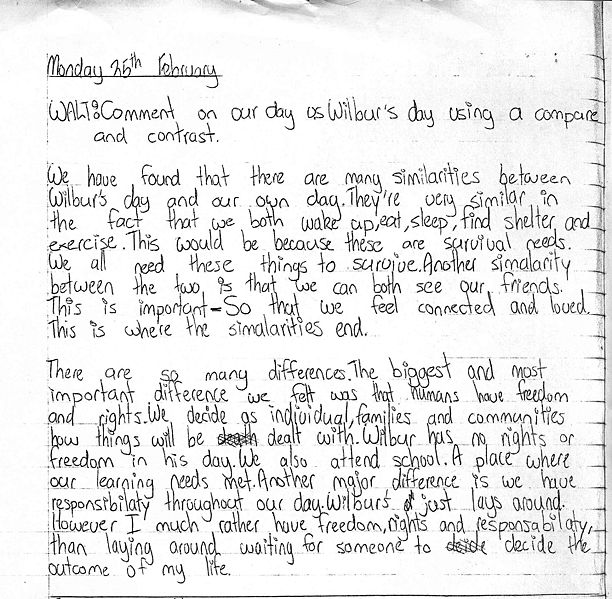 Monday 25th February
WALT:Comment on our day vs Wilbur's day using a compare
and contrast.
We have found that there are many similarities between
Wilbur's day and our own day. They're very similar in
the fact that we both wake up, eat, sleep, find shelter and
exercise. This would be because these are survival needs.
We all need these things to survive. Another simalarity
between the two, is that we can both see our friends.
This is important-So that we feel connected and loved.
This is where the simalarities end.
There are so many differences. The biggest and most
important difference we felt was that humans have freedom
and rights. We decide as individual, families and communities
how things will be dealt with. Wilbur has no rights or
freedom in his day. We also attend school. A place where
our learning needs met. Another major difference is we have
responsibilaty throughout our day. Wilburs just lays around.
However I much rather have freedom, rights and responsabilaty,
than laying around waiting for someone to decide the
outcome of my life.